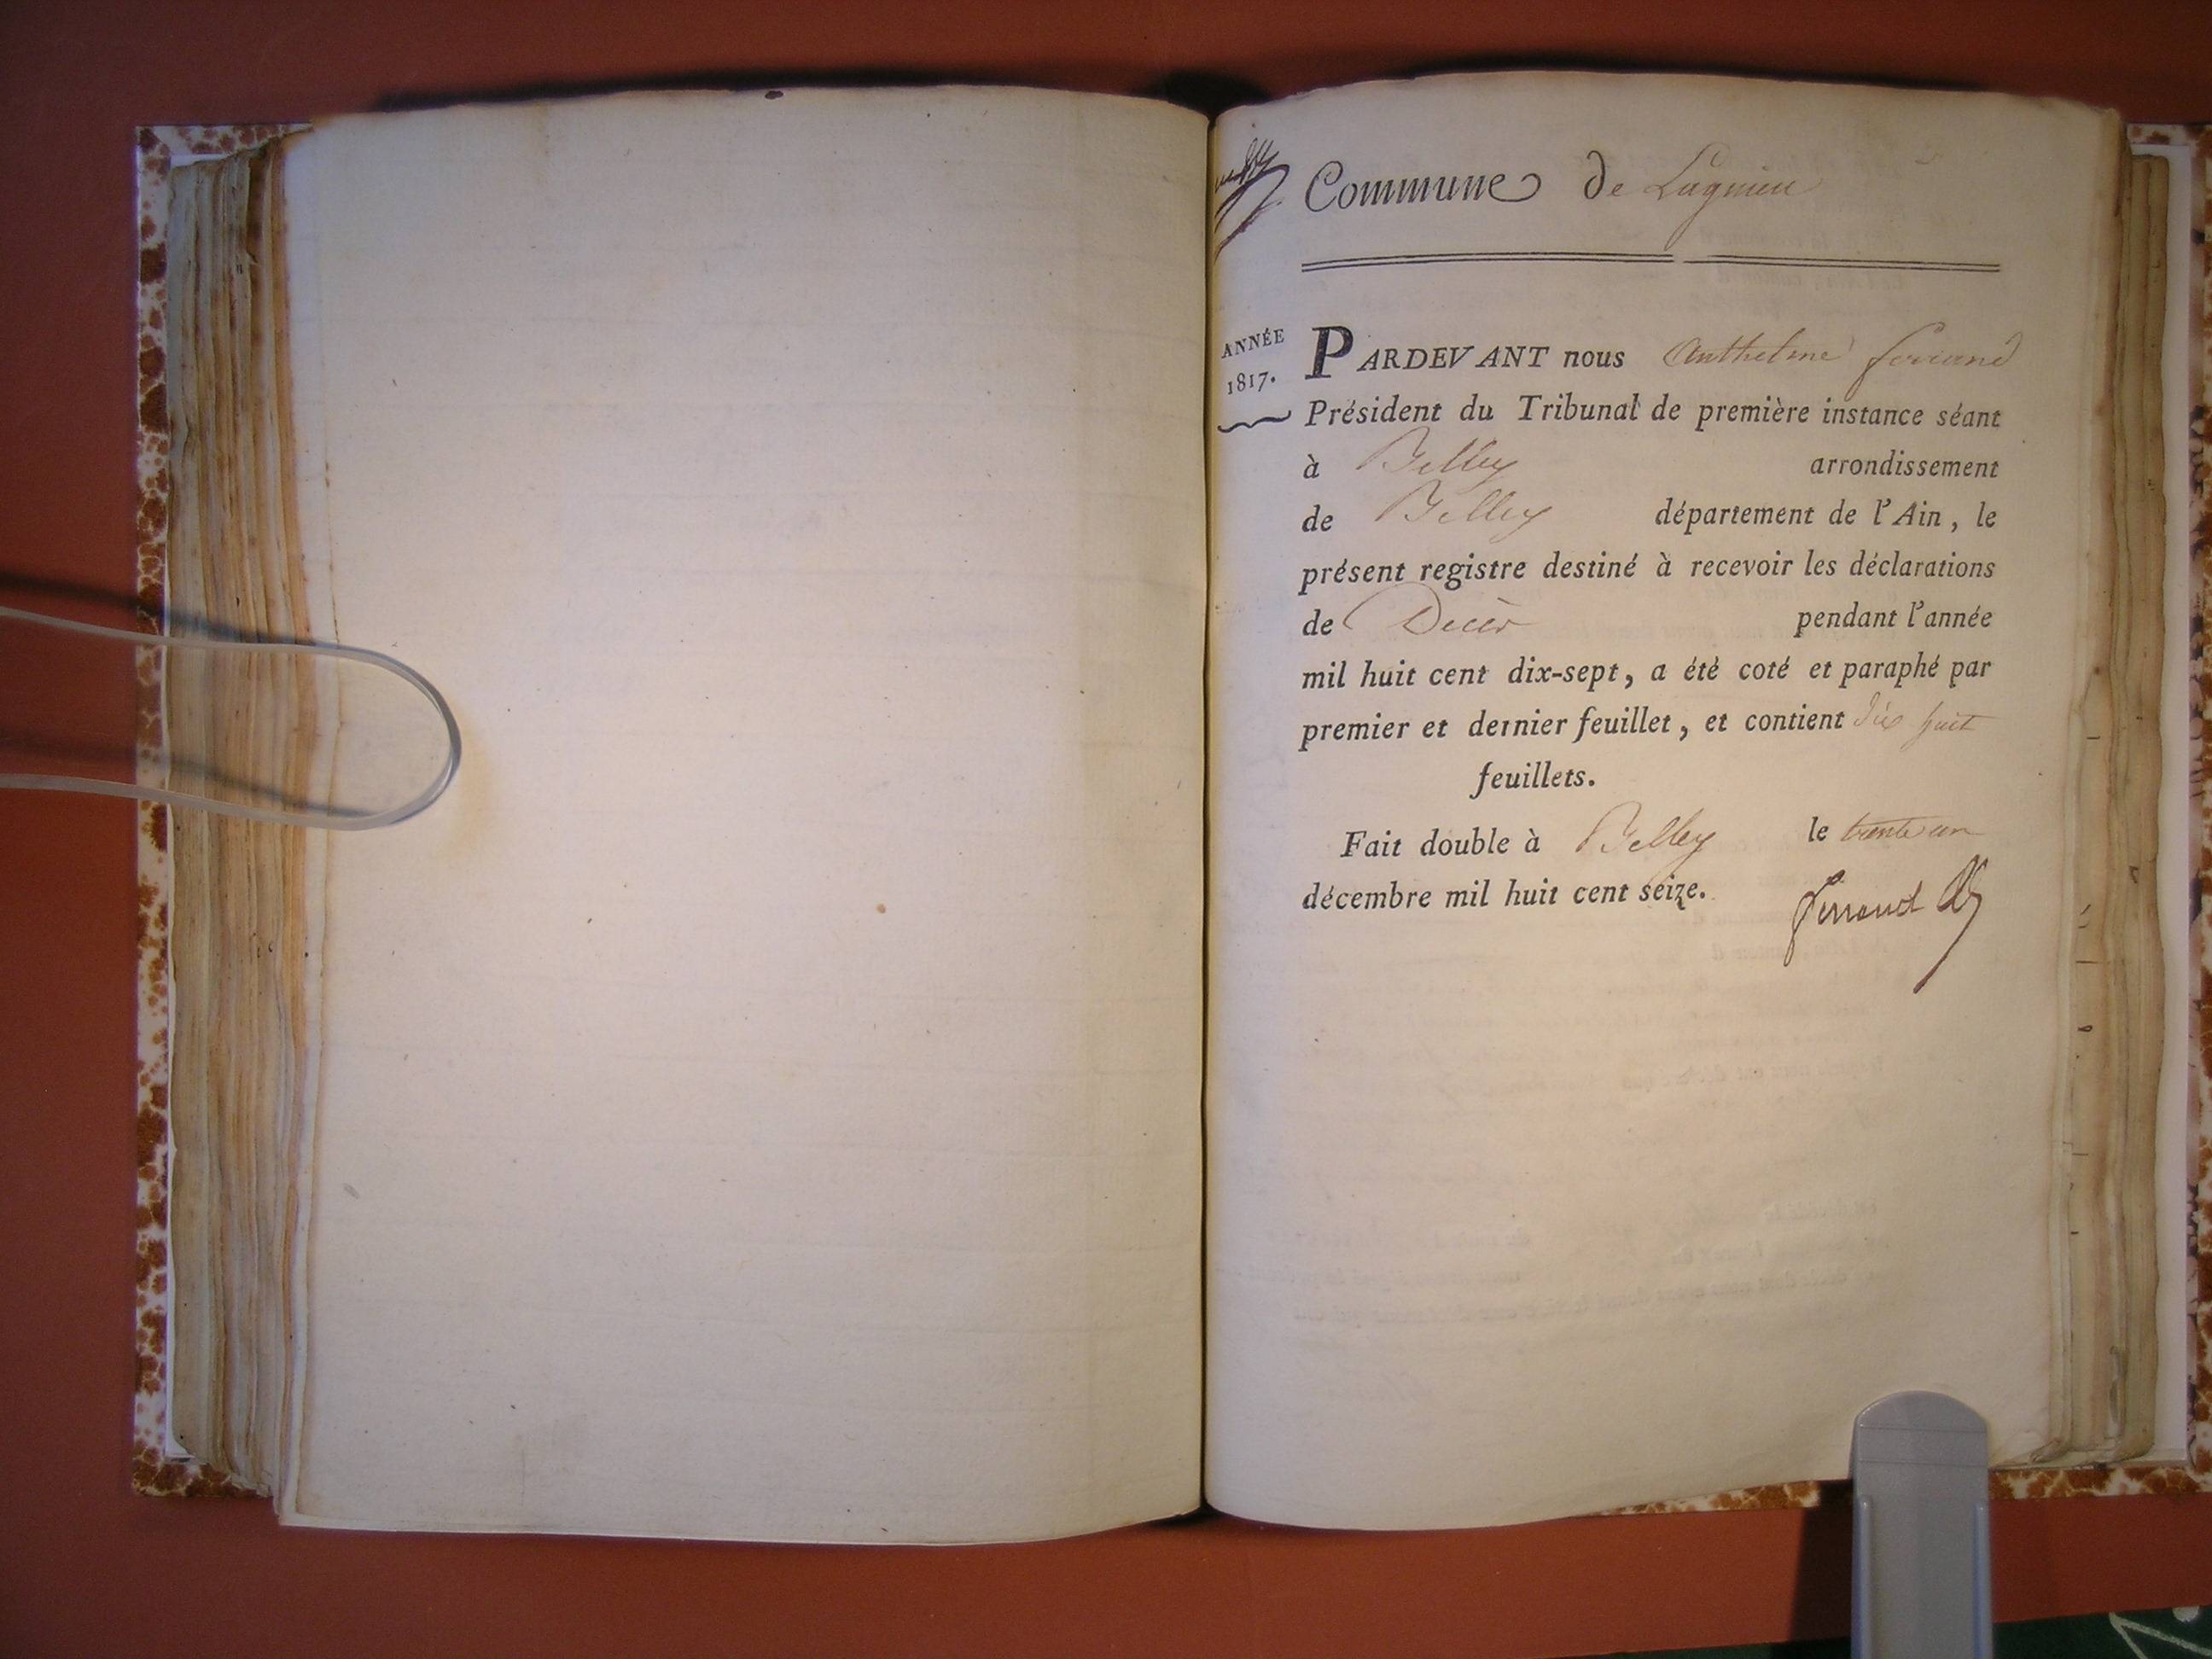 Commune de Lagnieu
ANNÉE
1817.
PARDEVANT nous Anthelme ferrand
Président du Tribunal de première instance séant
à Belley arrondissement
de Belley département de l'Ain, le
présent registre destiné à recevoir les déclarations
de Décès pendant l'année
mil huit cent dix-sept, a été coté et paraphé par
premier et dernier feuillet, et contient dix huit
feuillets.
Fait double à Belley le trente un
décembre mil huit cent seize.
ferrand